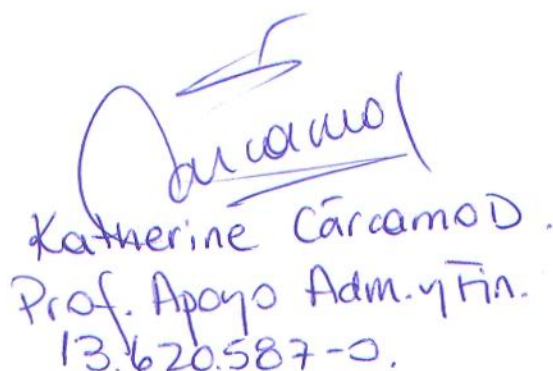 Cárcamo
Katherine Cárcamo D.
Prof. Apoyo Adm. y Fin.
13.620.587-0.